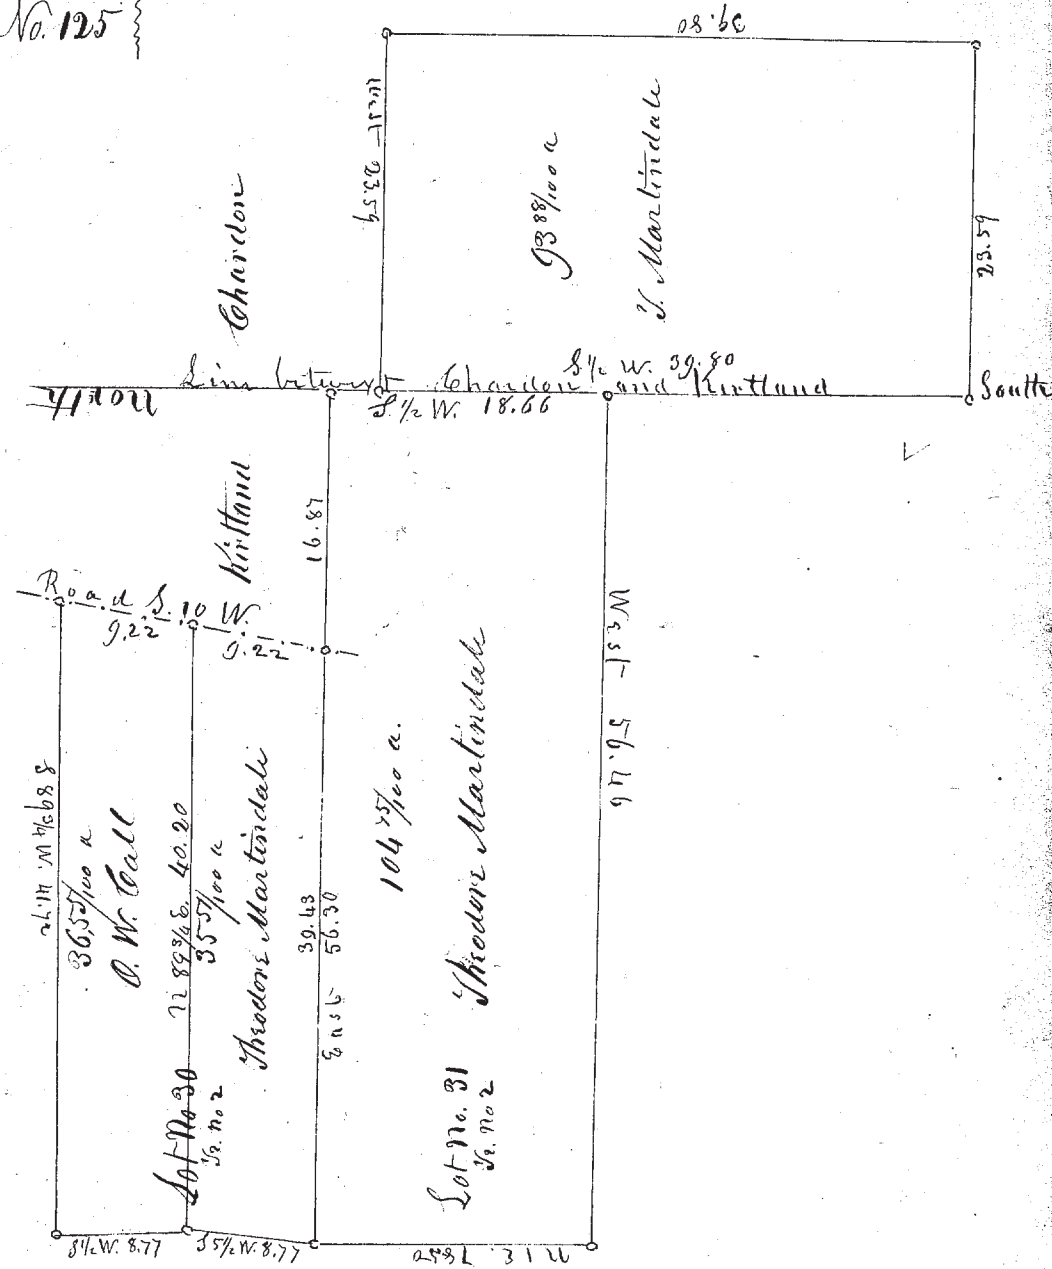 No. 125
39.80
West 23.59
Chardon
93 88/100 a
T. Martindale
23.59
S 1/2 W. 39.80
Line betwixt Chardon and Kirtland
North
South
S. 1/2 W. 18.66
Kirtland
16.87
Road S. 10 W.
9.22
9.22
West 56.46
S 89 3/4 W. 41.72
36,55/100 a
O. W. Call
N 89 3/4 E. 40.20
35 5/100 a
Theodore Martindale
39.43
East 56.30
104 75/100 a.
Theodore Martindale
Lot No 30
Tr. No 2
Lot No. 31
Tr. No 2
S 1/2 W. 8.77
S 5 1/2 W. 8.77
N 1 E. 18.50